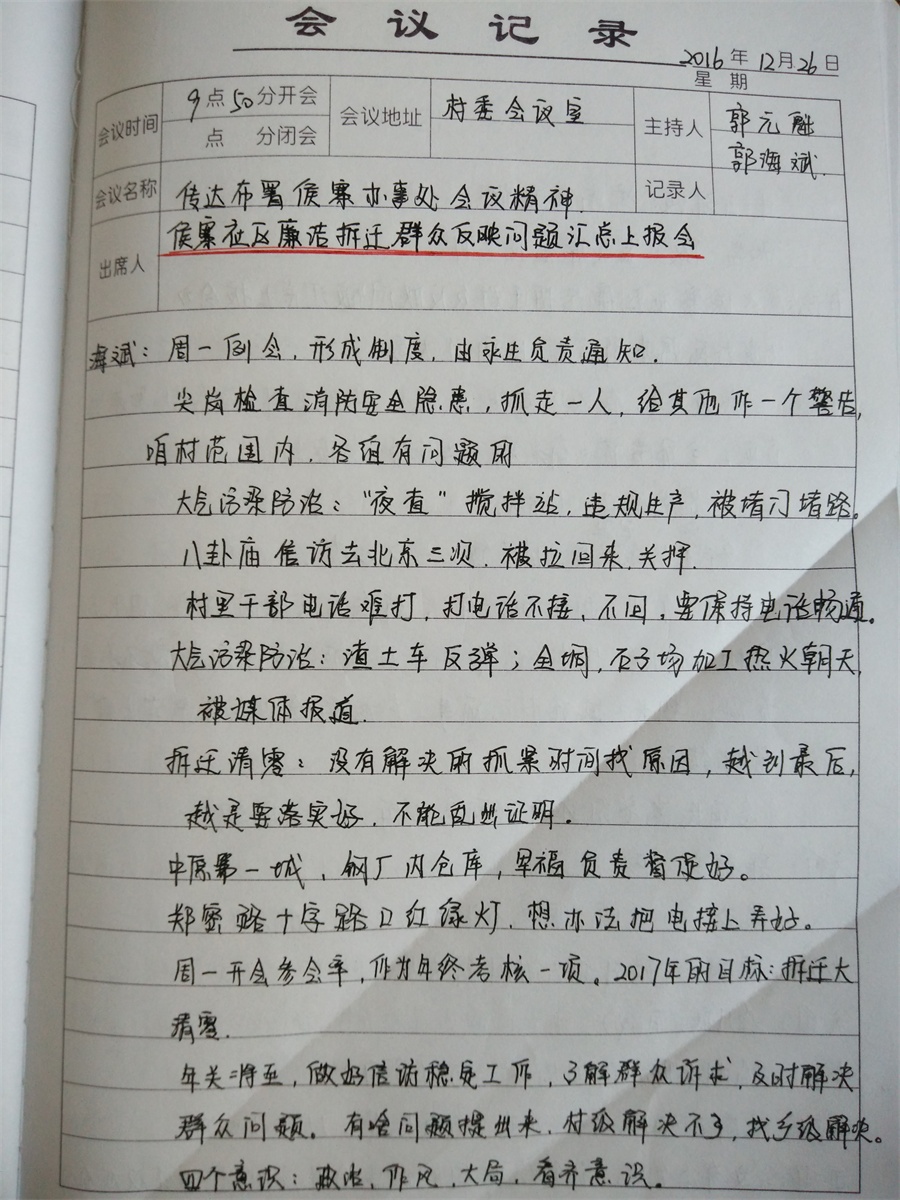 会议记录
2016年12月26日
星期
会议时间 9点50分开会 会议地址 村委会议室 主持人 郭元
点 分闭会 郭海斌
会议名称 传达布署侯寨办事处会议精神 记录人
侯寨社区廉洁拆迁群众反映问题汇总上报会
出席人
海斌：周一例会，形成制度，由永生负责通知．
尖岗检查消防安全隐患，抓走一人，给其他作一个警告，
咱村范围内．各组有问题的
大气污染防治："夜查"搅拌站，违规生产，被堵门堵路。
八卦庙信访去北京三次．被拉回来，关押．
村里干部电话难打，打电话不接、不回，要保持电话畅通。
大气污染防治：渣土车反弹；全垌，石子场加工热火朝天，
被媒体报道．
拆迁清零：没有解决的抓紧时间找原因，越到最后，
越是要落实好．不能乱出证明。
中原第一城，钢厂内仓库，负责督促好。
郑密路十字路口红绿灯．想办法把电接上弄好。
周一开会参会率，作为年终考核一项。2017年的目标：拆迁大
清零．
年关将至，做好信访稳定工作，了解群众诉求，及时解决
群众问题。有啥问题提出来，村级解决不了，找乡级解决。
四个意识：政治，作风，大局，看齐意识。